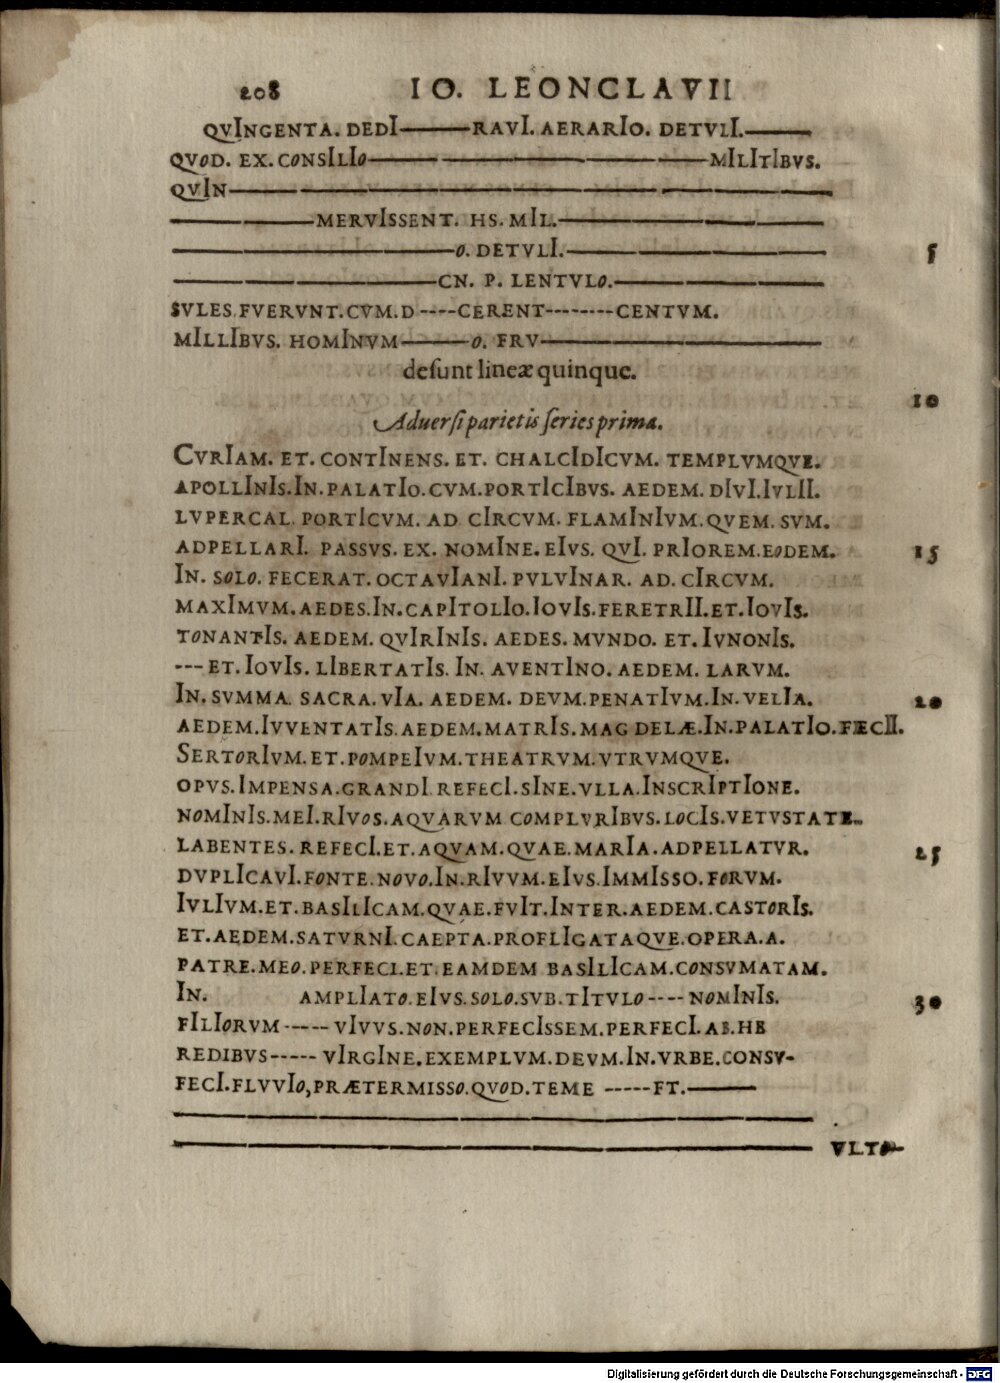 208 IO. LEONCLAVII
QVINGENTA. DEDI———RAVI. AERARIO. DETVLI.———
QVOD. EX. CONSILIO———————————MILITIBVS.
QVIN———————————————————
—————MERVISSENT. HS. MIL.—————————
—————————O. DETVLI.————————— 5
—————————CN. P. LENTVLO.———————
SVLES.FVERVNT.CVM.D----CERENT--------CENTVM.
MILLIBVS. HOMINVM———O. FRV——————————
desunt lineæ quinque.
10
Aduersi parietis series prima.
CVRIAM. ET. CONTINENS. ET. CHALCIDICVM. TEMPLVMQVE.
APOLLINIS.IN.PALATIO.CVM.PORTICIBVS. AEDEM. DIVI.IVLII.
LVPERCAL. PORTICVM. AD CIRCVM. FLAMINIVM.QVEM. SVM.
ADPELLARI. PASSVS. EX. NOMINE. EIVS. QVI. PRIOREM.EODEM. 15
IN. SOLO. FECERAT. OCTAVIANI. PVLVINAR. AD. CIRCVM.
MAXIMVM.AEDES.IN.CAPITOLIO.IOVIS.FERETRII.ET.IOVIS.
TONANTIS. AEDEM. QVIRINIS. AEDES. MVNDO. ET. IVNONIS.
---ET. IOVIS. LIBERTATIS. IN. AVENTINO. AEDEM. LARVM.
IN. SVMMA. SACRA. VIA. AEDEM. DEVM.PENATIVM.IN.VELIA. 20
AEDEM.IVVENTATIS.AEDEM.MATRIS.MAG DELÆ.IN.PALATIO.FECII.
SERTORIVM.ET.POMPEIVM.THEATRVM.VTRVMQVE.
OPVS.IMPENSA.GRANDI REFECI.SINE.VLLA.INSCRIPTIONE.
NOMINIS.MEI.RIVOS.AQVARVM COMPLVRIBVS.LOCIS.VETVSTATE.
LABENTES. REFECI.ET.AQVAM.QVAE.MARIA.ADPELLATVR. 25
DVPLICAVI.FONTE.NOVO.IN.RIVVM.EIVS.IMMISSO.FORVM.
IVLIVM.ET.BASILICAM.QVAE.FVIT.INTER.AEDEM.CASTORIS.
ET.AEDEM.SATVRNI.CAEPTA.PROFLIGATAQVE.OPERA.A.
PATRE.MEO.PERFECI.ET.EAMDEM BASILICAM.CONSVMATAM.
IN. AMPLIATO.EIVS.SOLO.SVB.TITVLO----NOMINIS. 30
FILIORVM-----VIVVS.NON.PERFECISSEM.PERFECI.AB.HE
REDIBVS-----VIRGINE.EXEMPLVM.DEVM.IN.VRBE.CONSV-
FECI.FLVVIO,PRÆTERMISSO.QVOD.TEME -----FT.———
————————————————————
————————————————————
VLTO-
Digitalisierung gefördert durch die Deutsche Forschungsgemeinschaft - DFG